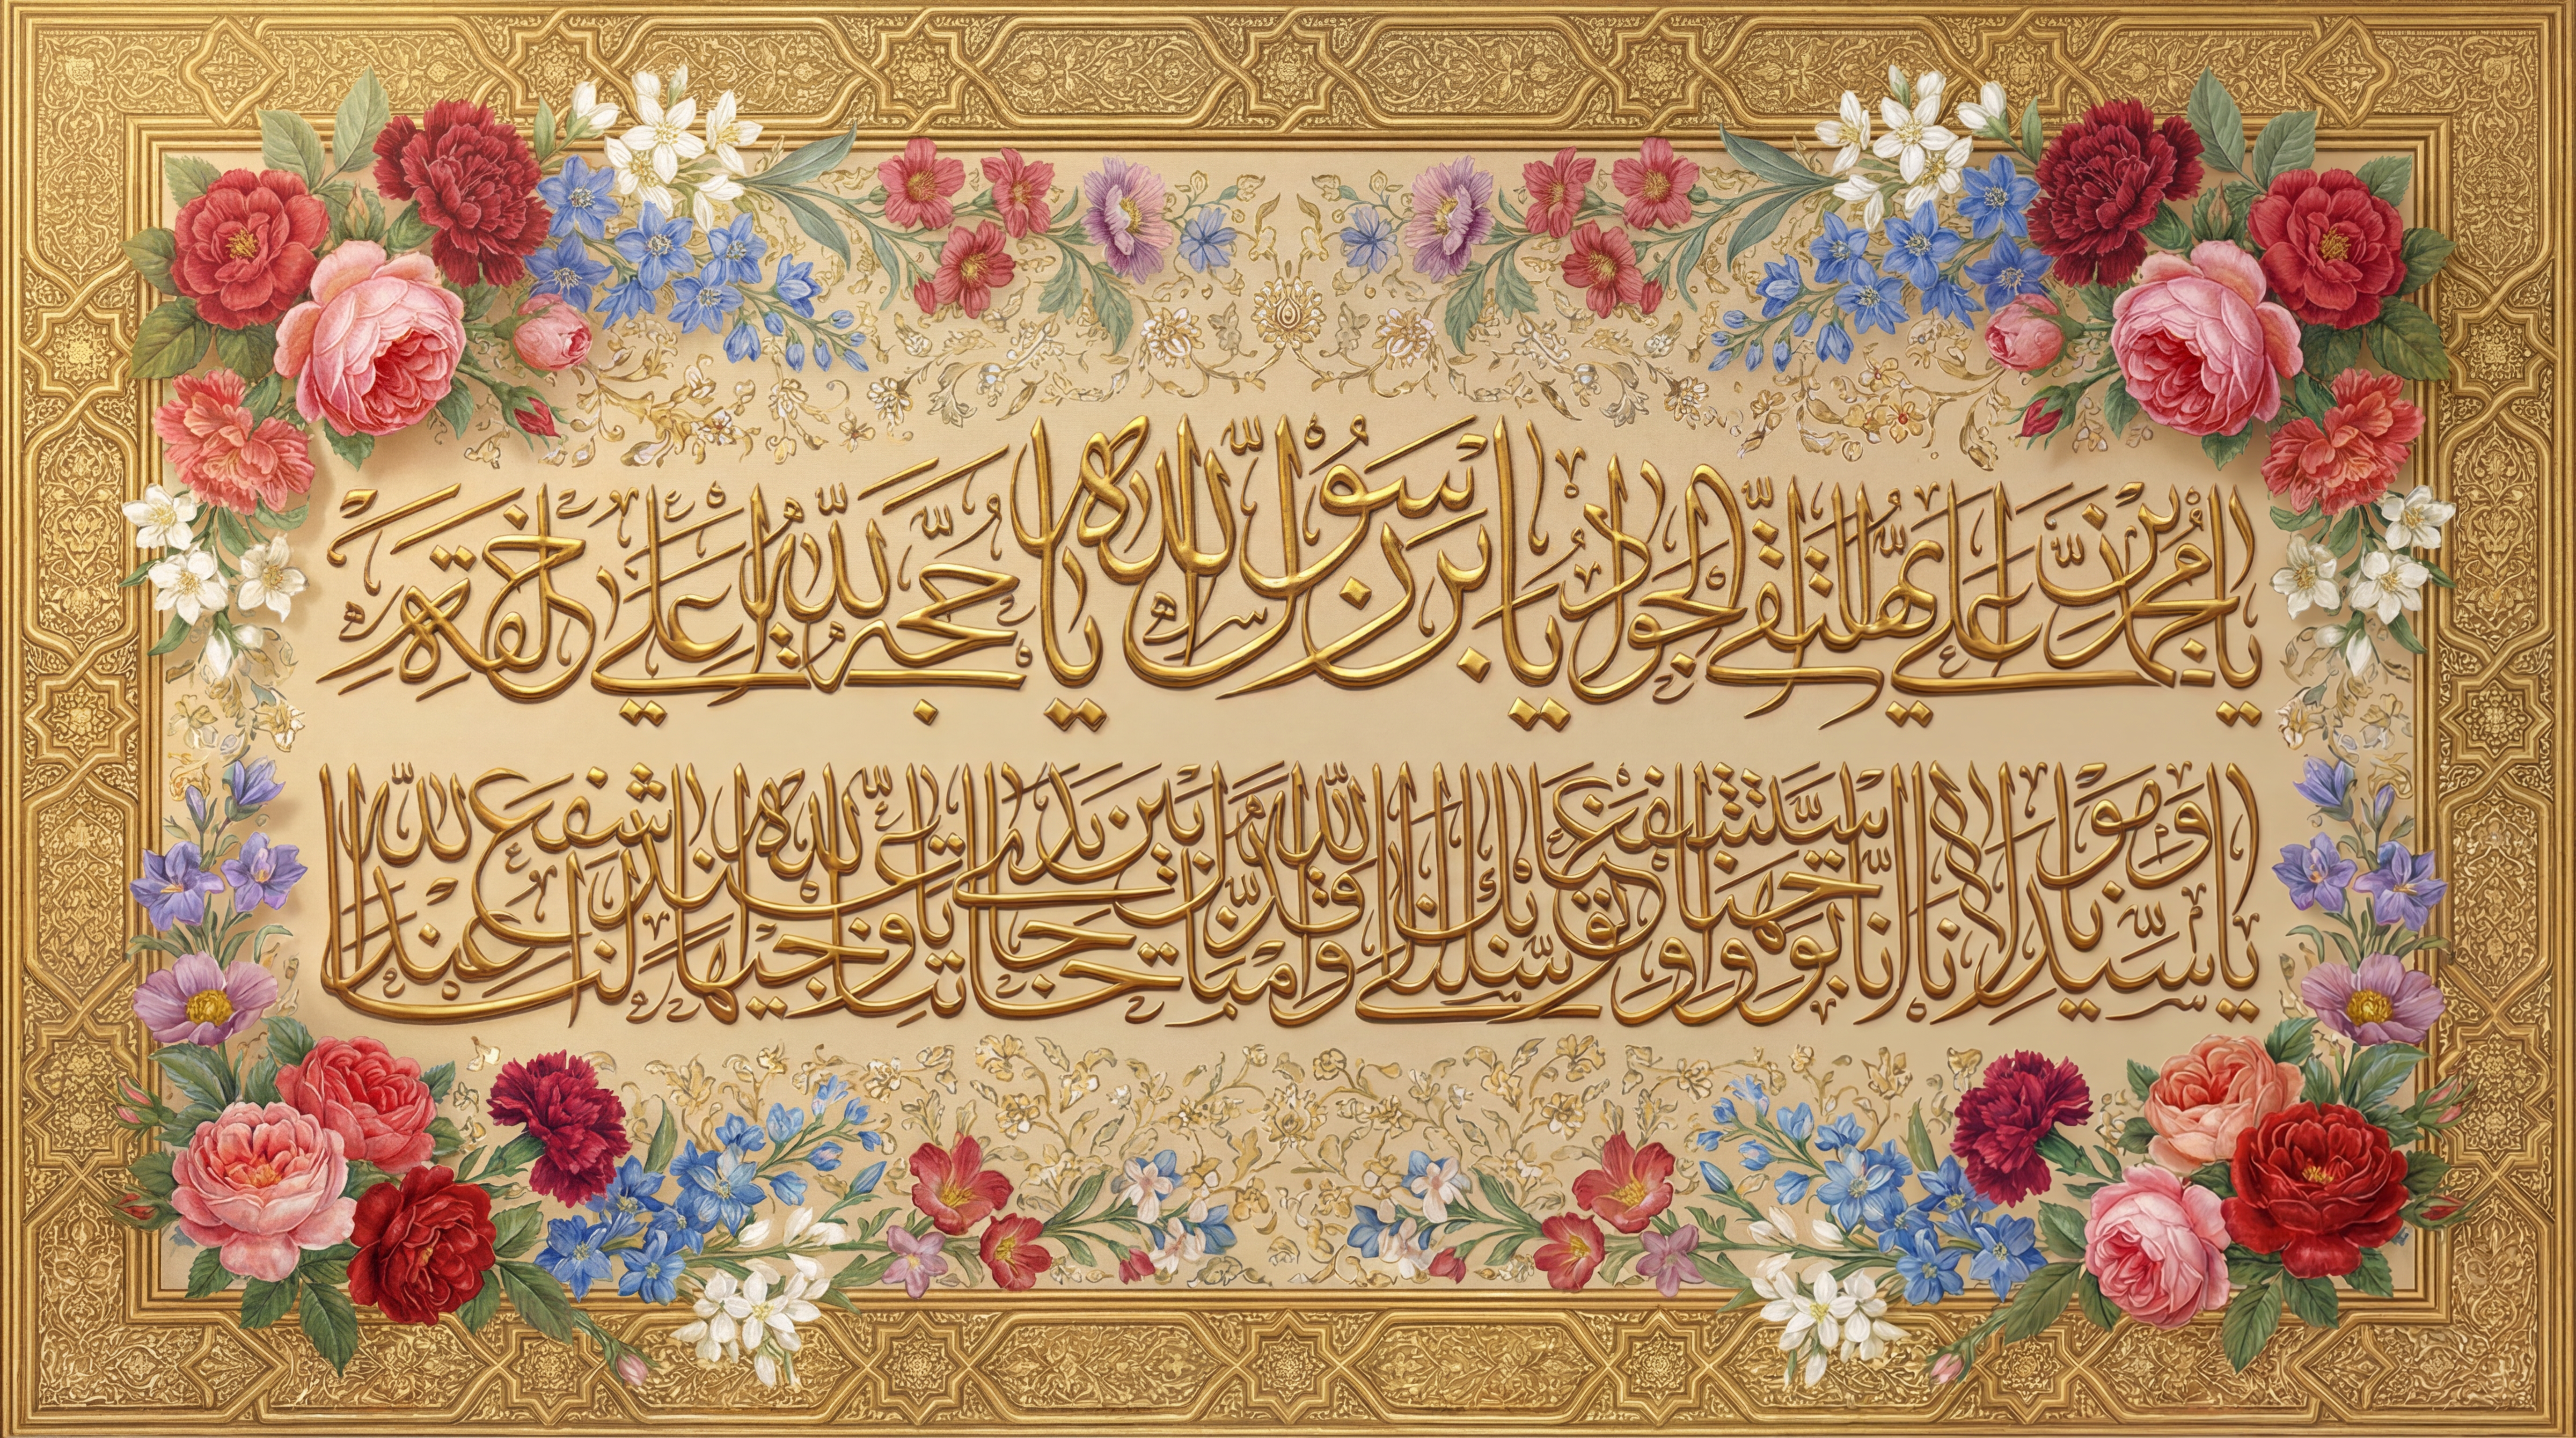 يا محمد بن علي ايها التقي الجواد يا بن رسول الله يا حجة الله على خلقه
يا سيدنا ومولانا انا توجهنا واستشفعنا وتوسلنا بك الى الله وقدمناك بين يدي حاجاتنا يا وجيها عند الله اشفع لنا عند الله